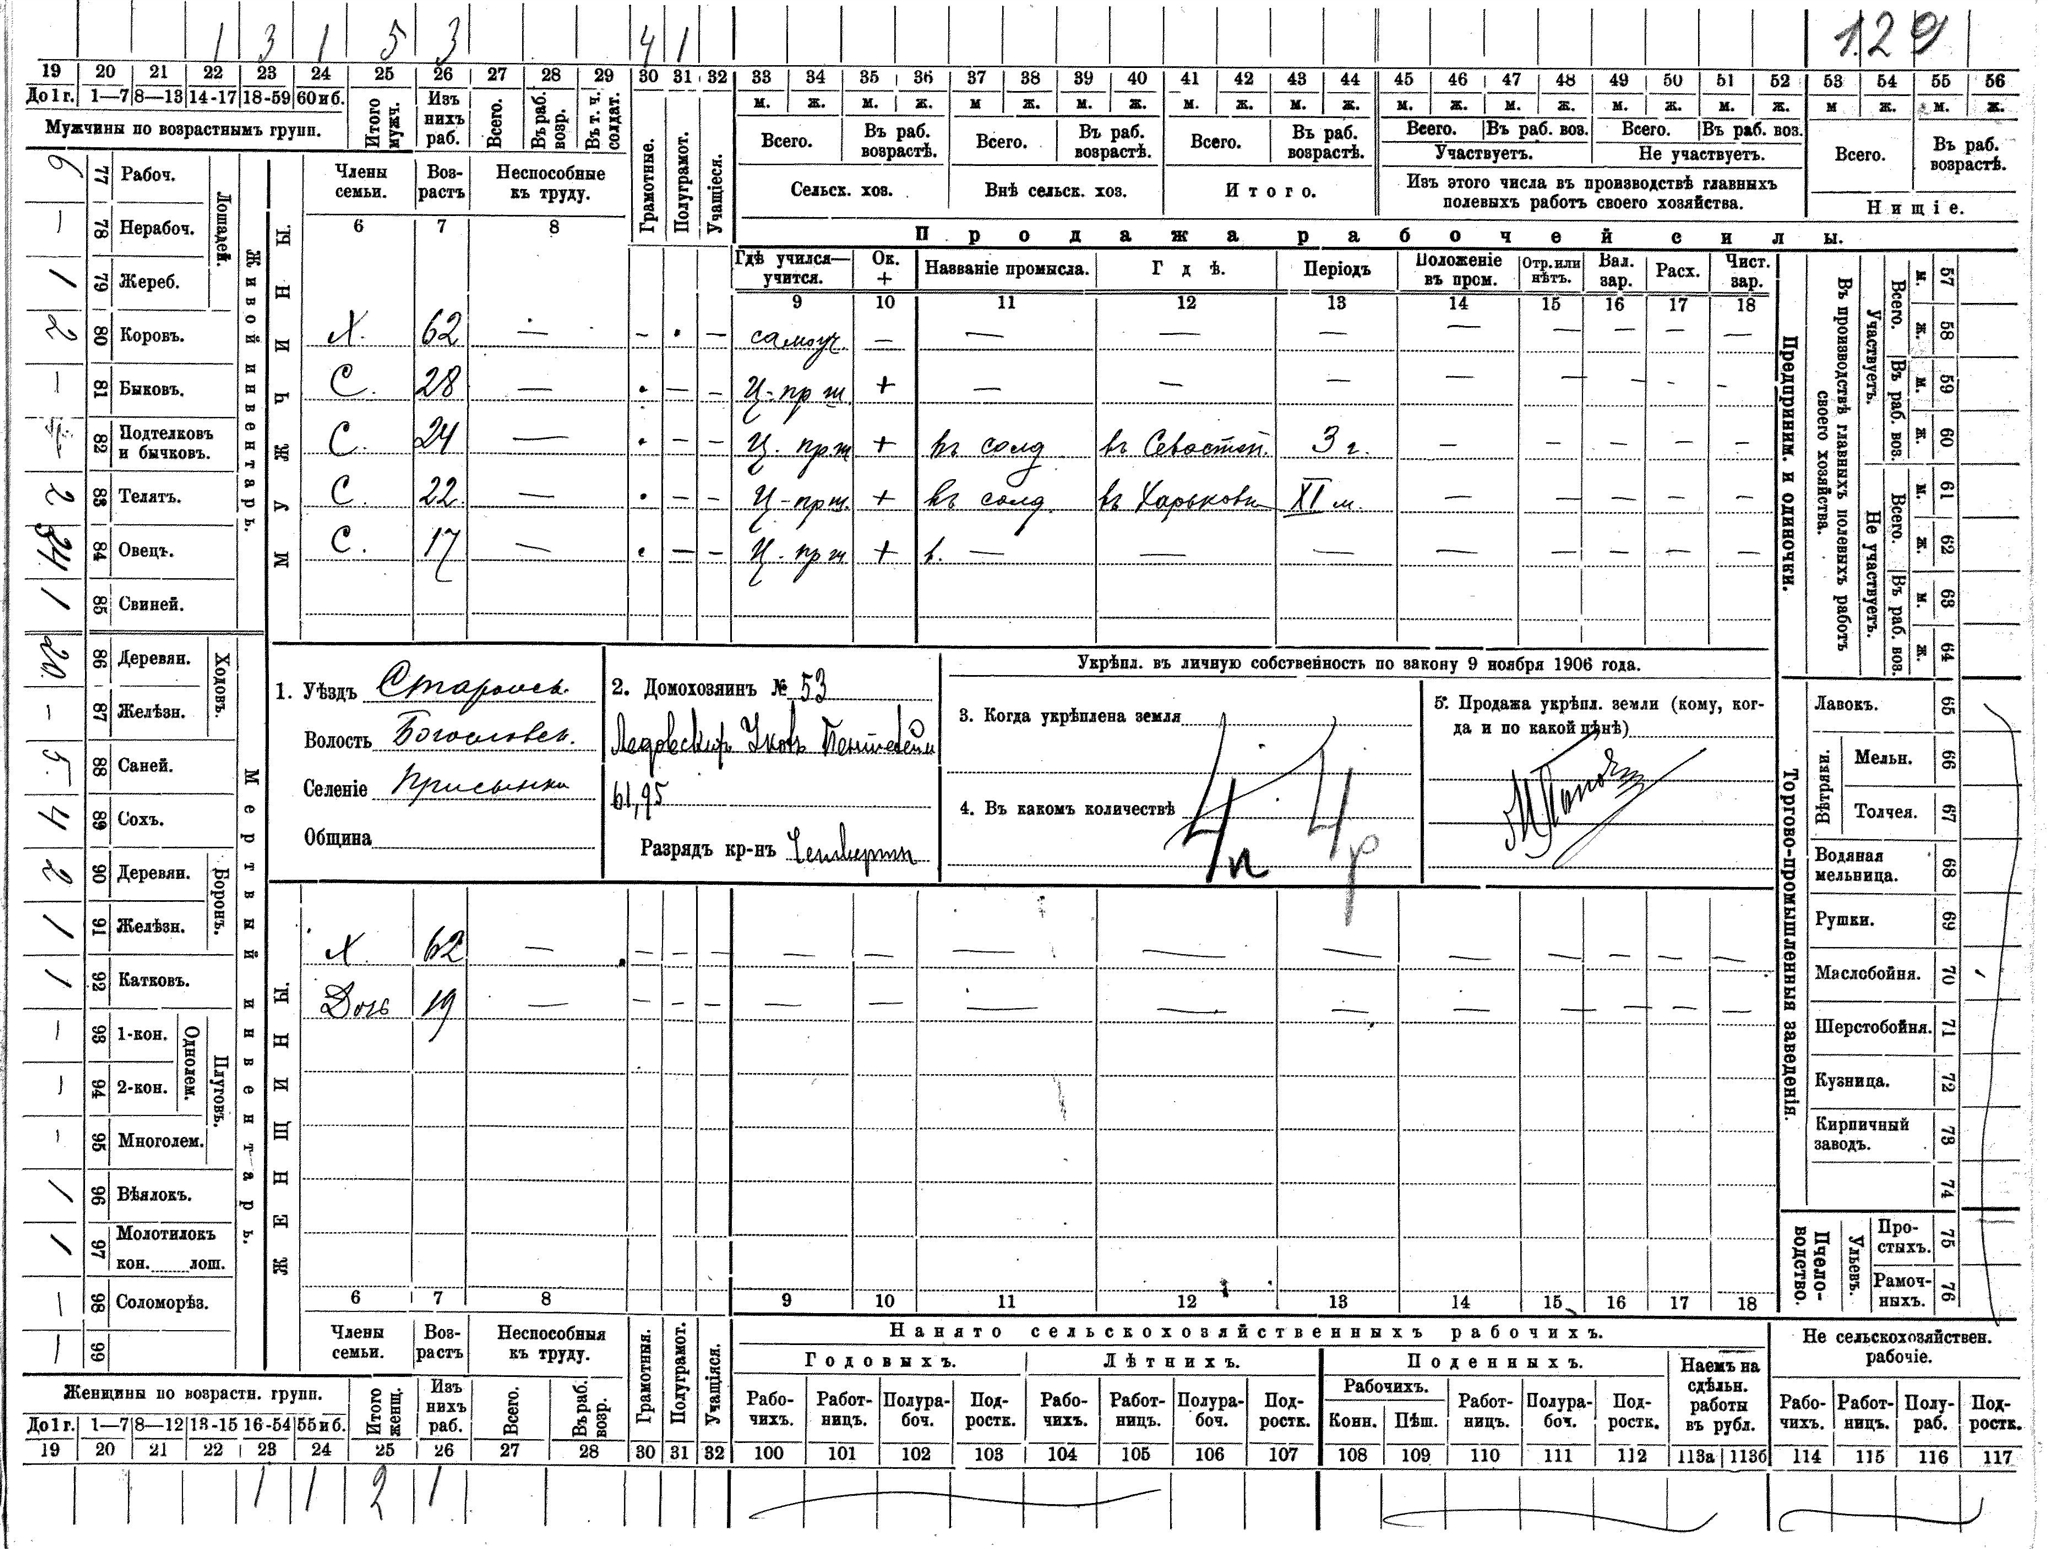 1 3 1 5 3 4 1 129
19 20 21 22 23 24 25 26 27 28 29 30 31 32 33 34 35 36 37 38 39 40 41 42 43 44 45 46 47 48 49 50 51 52 53 54 55 56
До 1 г. 1—7 8—13 14-17 18-59 60 и б. Итого мужч. Изъ нихъ раб. Всего. Въ раб. возр. Въ т. ч. солдат. Грамотные. Полуграмот. Учащіеся.
м. ж. м. ж. м ж. м. ж. м. ж. м. ж. м. ж. м. ж. м. ж. м. ж. м ж. м. ж.
Мужчины по возрастнымъ групп.
Всего. Въ раб. возрастѣ. Всего. Въ раб. возрастѣ. Всего. Въ раб. возрастѣ. Всего. Въ раб. воз. Всего. Въ раб. воз. Всего. Въ раб. возрастѣ.
Участвуетъ. Не участвуетъ.
Сельск. хоз. Внѣ сельск. хоз. Итого. Изъ этого числа въ производствѣ главныхъ полевыхъ работъ своего хозяйства. Нищіе.
Члены семьи. Возрастъ Неспособные къ труду.
6 7 8
Продажа рабочей силы.
Гдѣ учился—учится. Ок. + Названіе промысла. Гдѣ. Періодъ Положеніе въ пром. Отр. или нѣтъ. Вал. зар. Расх. Чист. зар.
9 10 11 12 13 14 15 16 17 18
МУЖЧИНЫ.
Х. 62 — – • – самоуч — — — — — — — — —
С. 28 — • – – Ц-пр ш. + — — — — — — — —
С. 24 — • – – Ц. пр. ш + въ солд въ Севастоп. 3 г. — — — — —
С. 22 — • – – Ц-пр ш. + въ солд въ Харьковѣ XI м. — — — — —
С. 17 — • – – Ц-пр ш + в. — — — — — — — —
Живой инвентарь.
Лошадей.
6 77 Рабоч.
— 78 Нерабоч.
1 79 Жереб.
2 80 Коровъ.
— 81 Быковъ.
82 Подтелковъ и бычковъ.
2 83 Телятъ.
34 84 Овецъ.
1 85 Свиней.
Мертвый инвентарь.
Ходовъ.
20. 86 Деревян.
— 87 Желѣзн.
5 88 Саней.
4 89 Сохъ.
Боронъ.
2 90 Деревян.
1 91 Желѣзн.
1 92 Катковъ.
Плуговъ. Однолем.
— 93 1-кон.
— 94 2-кон.
— 95 Многолем.
1 96 Вѣялокъ.
1 97 Молотилокъ кон. лош.
— 98 Соломорѣз.
— 99
1. Уѣздъ Старооск.
Волость Богословск.
Селеніе Присынки
Община
2. Домохозяинъ № 53
61,95
Разрядъ кр-нъ Четвертн
Укрѣпл. въ личную собственность по закону 9 ноября 1906 года.
3. Когда укрѣплена земля
4. Въ какомъ количествѣ
4п 4р
5. Продажа укрѣпл. земли (кому, когда и по какой цѣнѣ)
ЖЕНЩИНЫ.
Х. 62 — – – – — — — — — — — — — —
Дочь 19 — – – – — — — — — — — — — —
6 7 8 9 10 11 12 13 14 15 16 17 18
Члены семьи. Возрастъ Неспособныя къ труду. Грамотныя. Полуграмот. Учащіяся.
Предприним. и одиночки.
Въ производствѣ главныхъ полевыхъ работъ своего хозяйства.
Участвуетъ. Не участвуетъ.
Всего. Въ раб. воз. Всего. Въ раб. воз.
м. 57
ж. 58
м. 59
ж. 60
м. 61
ж. 62
м. 63
ж. 64
Торгово-промышленныя заведенія.
Лавокъ. 65
Вѣтряки.
Мельн. 66
Толчея. 67
Водяная мельница. 68
Рушки. 69
Маслобойня. 70
Шерстобойня. 71
Кузница. 72
Кирпичный заводъ. 73
74
Пчеловодство. Ульевъ.
Простыхъ. 75
Рамочныхъ. 76
Нанято сельскохозяйственныхъ рабочихъ.
Годовыхъ. Лѣтнихъ. Поденныхъ. Наемъ на сдѣльн. работы въ рубл.
Не сельскохозяйствен. рабочіе.
Женщины по возрастн. групп. Итого женщ. Изъ нихъ раб. Всего. Въ раб. возр.
До 1 г. 1—7 8—12 13-15 16-54 55 и б.
Рабочихъ. Работницъ. Полурабоч. Подростк. Рабочихъ. Работницъ. Полурабоч. Подростк. Рабочихъ. Конн. Пѣш. Работницъ. Полурабоч. Подростк. Рабочихъ. Работницъ. Полураб. Подростк.
19 20 21 22 23 24 25 26 27 28 30 31 32 100 101 102 103 104 105 106 107 108 109 110 111 112 113а 113б 114 115 116 117
1 1 2 1